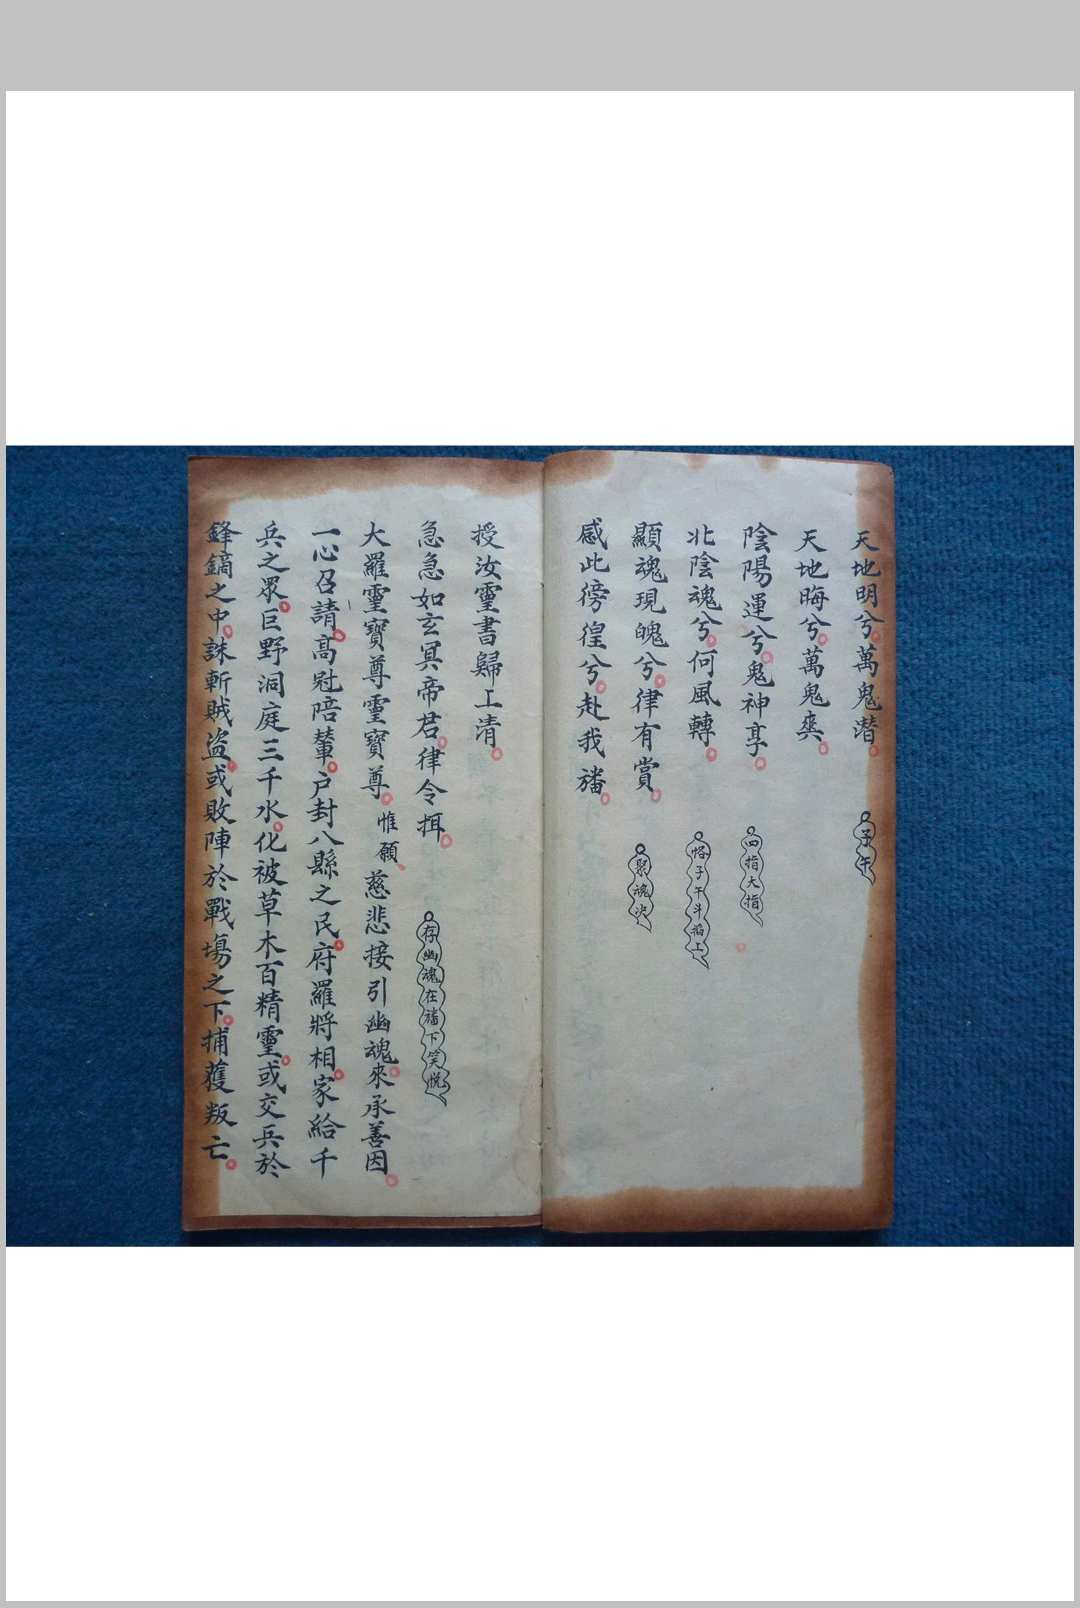 天地明兮萬鬼潛 子午
天地晦兮萬鬼爽
陰陽運兮鬼神享 四指大指
北陰魂兮何風轉 悋子午斗掐上
顯魂現魄兮律有賞 聚魂决
感此徬徨兮赴我旛
授汝靈書歸上清
急急如玄冥帝君律令揖 存幽魂在旛下笑悅
大羅靈寶尊靈寶尊惟願慈悲接引幽魂來承善因
一心召請高冠陪輦户封八縣之民府羅將相家給千
兵之眾巨野洞庭三千水化被草木百精靈或交兵於
鋒鏑之中誅斬賊盜或敗陣於戰塲之下捕獲叛亡